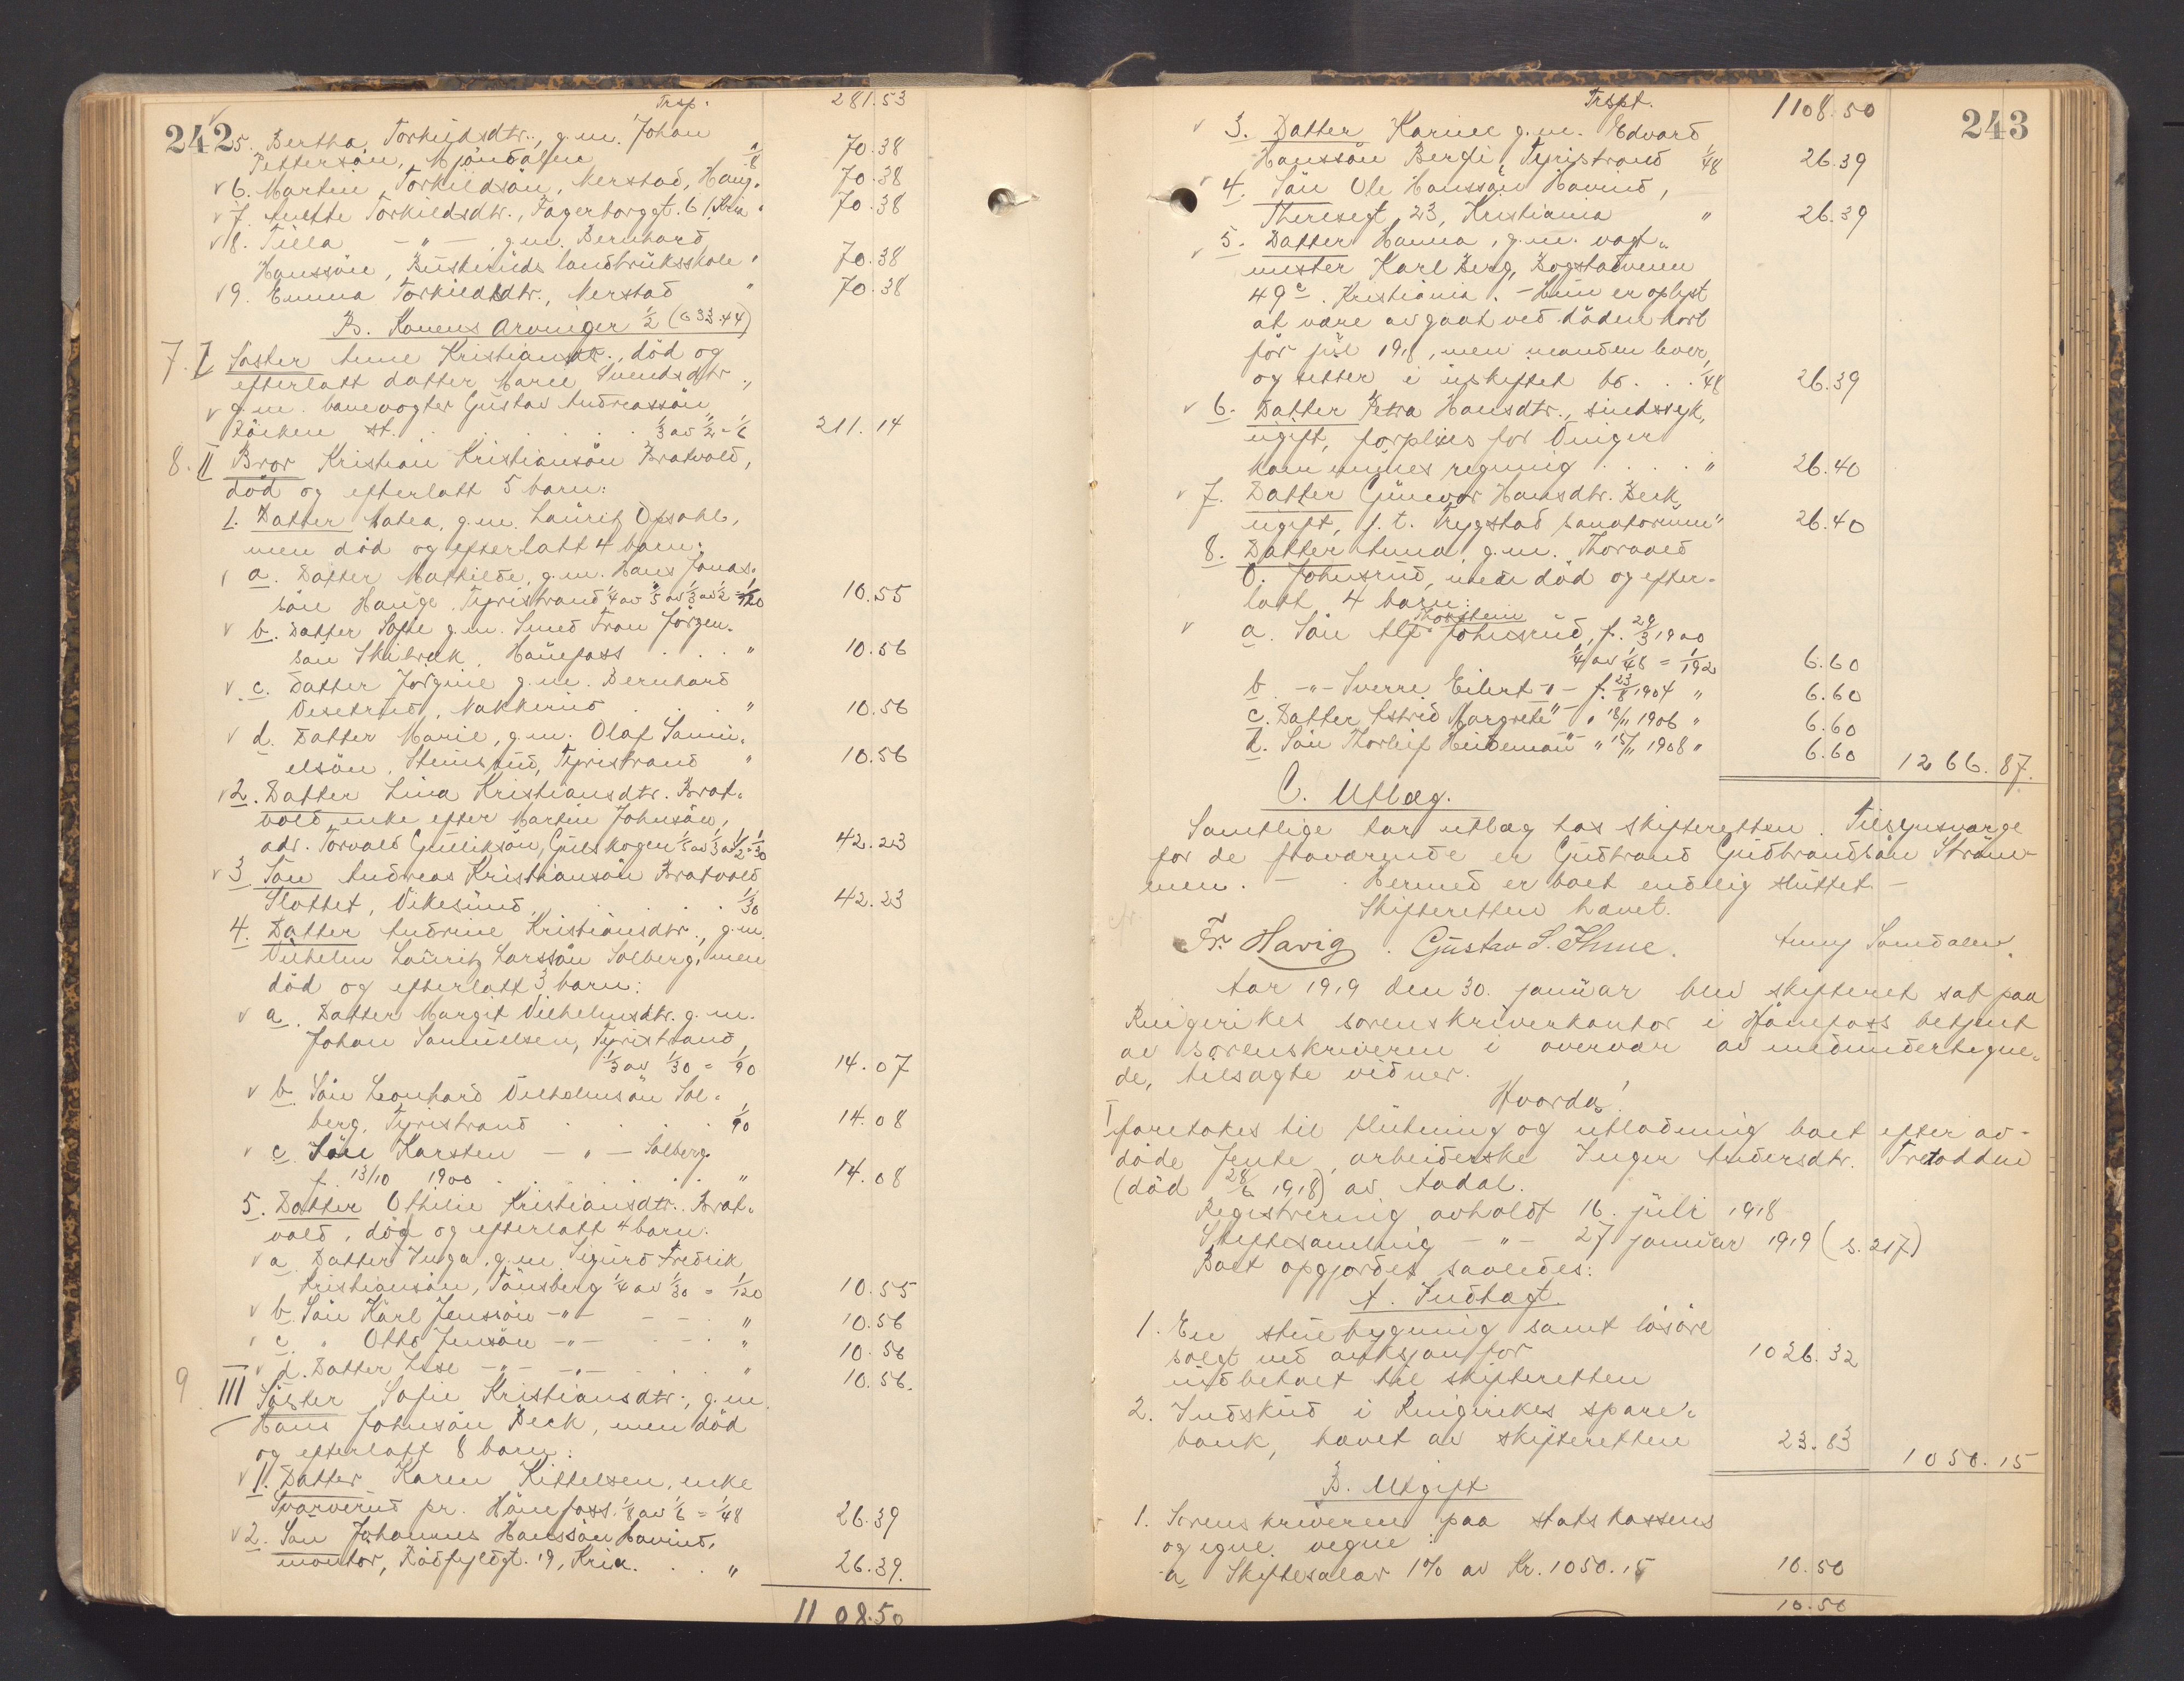 242
Trsp. 281.53
5. Bertha Torkildsdtr., g.m. Johan
Pettersön, Mjöndalen 1/8 70.38
6. Martin Torkildsön, Nerstad, Haug. 70.38
7. Anette Torkildsdtr., Fagerborggt. 6 Kria " 70.38
8. Tilla - " - , g.m. Bernhard
Hanssön, Buskeruds landbruksskole " 70.38
9. Emma Torkildsdtr., Nerstad " 70.38
B. Konens arvinger 1/2 (633.44)
7. I Söster Anne Kristiansdtr., död og
efterlatt datter Maren Svendsdtr.,
g.m. banevogter Gustav Andreassön
Röiken st. . . . . . . 1/3 av 1/2 = 1/6 211.14
8. II Bror Kristian Kristiansön Bratvold,
död og efterlatt 5 barn:
1. Datter Mathea, g.m. Lauritz Opsahl,
men död og efterlatt 4 barn:
a. Datter Mathilde, g.m. Hans Jonas-
sön Hauge Tyristrand 1/4 av 1/5 av 1/3 av 1/2 = 1/120 10.55
b. Datter Sofie g.m. Smed Fron Jörgen-
sön Skibrek, Hönefoss . . . " 10.56
c. Datter Jörgine g.m. Bernhard
Viseterud, Nakkerud . . . " 10.56
d. Datter Marie, g.m. Olaf Samu-
elsön, Stensrud, Tyristrand " 10.56
2. Datter Lina Kristiansdtr. Brat-
vold, enke efter Martin Johnsön,
adr. Torvald Gulliksön, Gulskogen 1/5 av 1/3 av 1/2 = 1/30 42.23
3. Sön Andreas Kristiansön Bratvold
Slottet, Vikesund . . . . . 1/30 42.23
4. Datter Andrine Kristiansdtr., g.m.
Vilhelm Lauritz Larssön Solberg, men
död og efterlatt 3 barn:
a. Datter Margit Vilhelmsdtr. g.m.
Johan Samuelsen, Tyristrand
1/3 av 1/30 = 1/90 14.07
b. Sön Leonhard Vilhelmsön Sol-
berg, Tyristrand . . . . 1/90 14.08
c. Sön Karsten - " - Solberg
f. 13/10 1900 . . . . . . " 14.08
5. Datter Othilie Kristiansdtr. Brat-
vold, död og efterlatt 4 barn:
a. Datter Inga, g.m. Sigurd Fredrik
Kristiansön, Tönsberg 1/4 av 1/30 = 1/120 10.55
b. Sön Karl Jenssön - " - - - . " 10.56
c. " Otto Jensön - " - - - . " 10.56
d. Datter Lise - " - - " - . . " 10.56.
9 III Söster Sofie Kristiansdtr., g.m.
Hans Johnsön Beck, men död
og efterlatt 8 barn:
1. Datter Karen Kittelsen, enke
Svarverud pr. Hönefoss 1/8 av 1/6 = 1/48 26.39
2. Sön Johannes Hanssön Havind,
montör, Rödfyldgt. 19, Kria. . . " 26.39.
1108.50
243
Trspt. 1108.50
3. Datter Karine g.m. Edvard
Hanssön Bergli, Tyristrand 1/48 26.39
4. Sön Ole Hanssön Havind,
Theresegt. 23, Kristiania " 26.39
5. Datter Hanna, g.m. vagt-
mester Karl Berg, Bogstadveien
49 c. Kristiania. - Hun er oplyst
at være avgaat ved döden kort
för jul 1918, men manden lever,
og sitter i uskiftet bo. . . 1/48 26.39
6. Datter Petra Hansdtr., sindssyk,
ugift, forpleies for Öniger
kommunes regning . . . . " 26.40
7. Datter Gunvor Hansdtr. Beck
ugift, f.t. Trygstad sanatorium " 26.40
8. Datter Anna g.m. Thorvald
O. Johnsrud, men död og efter-
latt 4 barn:
a. Sön Alf Thorstein Johnsrud, f. 29/3 1900
1/4 av 1/48 = 1/192 6.60
b. - " - Sverre Eilert - " - f. 23/8 1904 " 6.60
c. Datter Astrid Margrete " " 18/11 1906 " 6.60
d. Sön Thorleif Heideman " " 15/11 1908 " 6.60 1266.87.
C. Utlæg.
Samtlige tar utlæg hos skifteretten. Tilsynsværge
for de fraværende er Gudbrand Gudbrandsön Ström-
men. - . Hermed er boet endelig sluttet -
Skifteretten hævet.
Fr. Havig . Gustav S. Ihme. Amy Sandalen.
Aar 1919 den 30. januar blev skifteret sat paa
Ringerikes sorenskriverkontor i Hönefoss betjent
av sorenskriveren i overvær av medundertegne-
de, tilsagte vidner.
Hvorda!
I foretokes til slutning og utlodning boet efter av-
döde Jente, arbeiderske Inger Andersdtr. Tretodden
(död 28/6 1918) av Aadal.
Registrering avholdt 16. juli 1918
Skiftesamling - " - 27 januar 1919 (s. 217)
Boet opgjordes saaledes:
A. Indtægt.
1. En stuebygning samt lösöre
solgt ved auksjon for
indbetalt til skifteretten 1026.32
2. Indskud i Ringerikes spare-
bank, hævet av skifteretten 23.83 1050.15
B. Utgift
1. Sorenskriveren paa statskassens
og egne vegne:
a Skiftesalær 1% av Kr. 1050.15 10.50
10.50